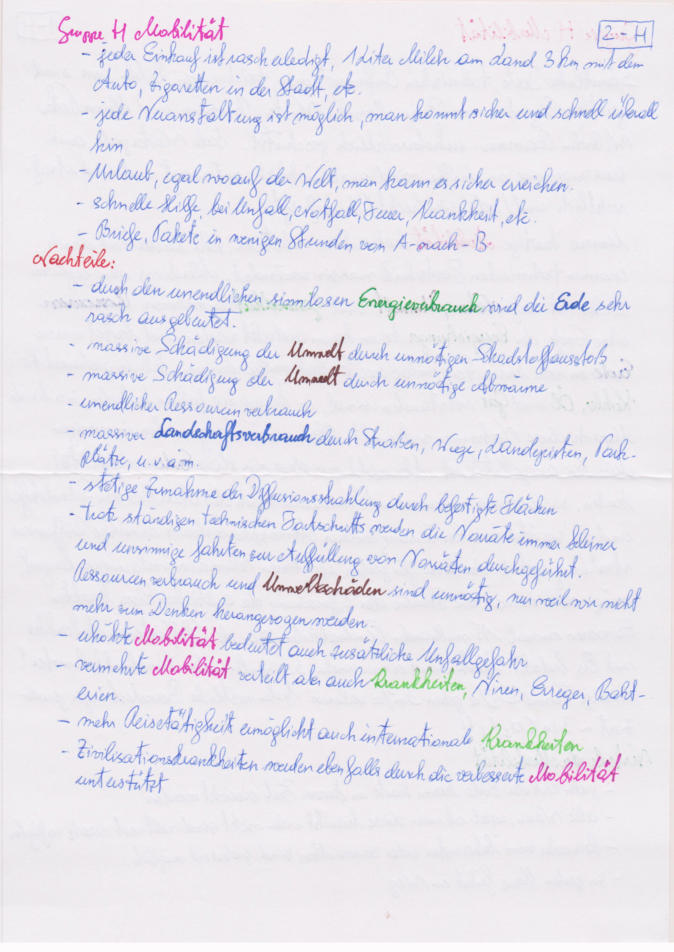 Gruppe H Mobilität
2-H
- jeder Einkauf ist rasch erledigt, 1 Liter Milch am Land 3 km mit dem
Auto, Zigaretten in der Stadt, etc.
- jede Veranstaltung ist möglich, man kommt sicher und schnell überall
hin
- Urlaub, egal wo auf der Welt, man kann es sicher erreichen.
- schnelle Hilfe, bei Unfall, Notfall, Feuer, Krankheit, etc.
- Briefe, Pakete in wenigen Stunden von A-nach-B
Nachteile:
- durch den unendlichen sinnlosen Energieverbrauch wird die Erde sehr
rasch ausgebeutet.
- massive Schädigung der Umwelt durch unnötigen Schadstoffausstoß
- massive Schädigung der Umwelt durch unnötige Abwärme
- unendlicher Ressourcenverbrauch
- massiver Landschaftsverbrauch durch Straßen, Wege, Landepisten, Park-
plätze, u.v.a.m.
- stetige Zunahme der Diffusionsstrahlung durch befestigte Flächen
- trotz ständigen technischen Fortschritts werden die Vorräte immer kleiner
und unsinnige Fahrten zur Auffüllung von Vorräten durchgeführt.
Ressourcenverbrauch und Umweltschäden sind unnötig, nur weil wir nicht
mehr zum Denken herangezogen werden.
- erhöhte Mobilität bedeutet auch zusätzliche Unfallgefahr
- vermehrte Mobilität verteilt aber auch Krankheiten, Viren, Erreger, Bakt-
erien.
- mehr Reisetätigkeit ermöglicht auch internationale Krankheiten
- Zivilisationskrankheiten werden ebenfalls durch die verbesserte Mobilität
unterstützt